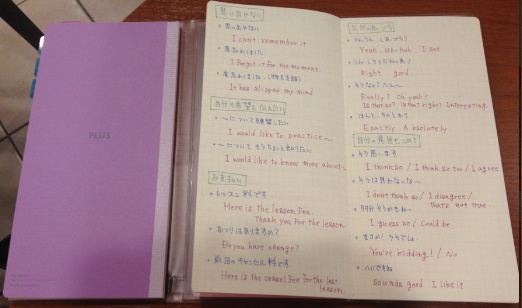 PLUS
思い出せない
• 思い出せない
I can't remember it
• 度忘れしました
I forgot it for the moment.
• 度忘れしました。
It has slipped my mind
自分の希望を伝えたい
• 〜について練習したい
I would like to practice〜
• 〜についてもうちょっと知りたい
I would like to know more about〜
お支払い
• レッスン料です
Here is the lesson fee.
Thank you for the lesson.
• おつりはありますか?
Do you have change?
• 前回のキャンセル料です
Here is the cancel fee for the last
lesson.
• うんうん
Yeah. Uh-huh. I see
• うん
Right. good
Really? Oh yeah?
Is that so? Is that right? Interesting.
Exactly Absolutely
• そう思います
I think so / I think so too / I agree
I don't think so / I disagree /
that's not true.
I guess so / Could be
You're kidding! / No
• いいですね
Sounds good I like it